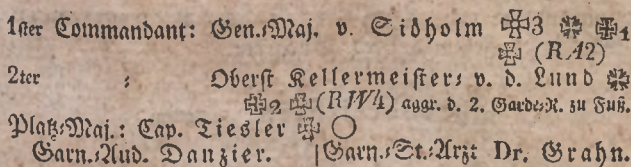 1ster Commandant: Gen.-Maj. v. Sidholm ✠3 ✠ ✠1
✠ (RA2)
2ter : Oberst Kellermeister- v. d. Lund ✠
✠2 ✠ (RW4) aggr. d. 2. Garde-R. zu Fuß.
Platz-Maj.: Cap. Tiesler ✠ ○
Garn.-Aud. Danzier. | Garn.-St.-Arzt Dr. Grahn.